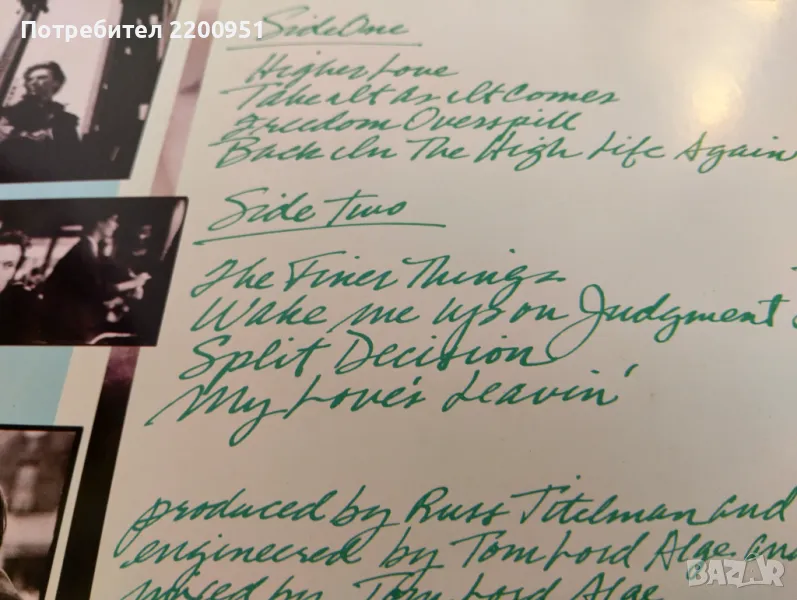 Потребител 2200951
Side One
Higher Love
Take It As It Comes
Freedom Overspill
Back In The High Life Again
Side Two
The Finer Things
Wake me up on Judgment
Split Decision
My Love's Leavin'
produced by Russ Titelman and
engineered by Tom Lord Alge and
mixed by Tom Lord Alge
BAZAR